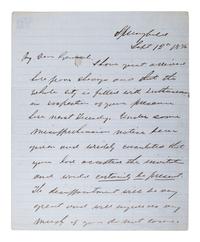 Springfield
Sept 12th 18
My Dear General.
I have just arrived
here from Chicago and that the
whole city is filled with enthusiasm
in expectation of your presence
here next Tuesday. Under some
misapprehension notices have
been given and widely circulated that
you have accepted the invitation
and would certainly be present.
The disappointment will be very
great and will injure us very
much if you do not come.